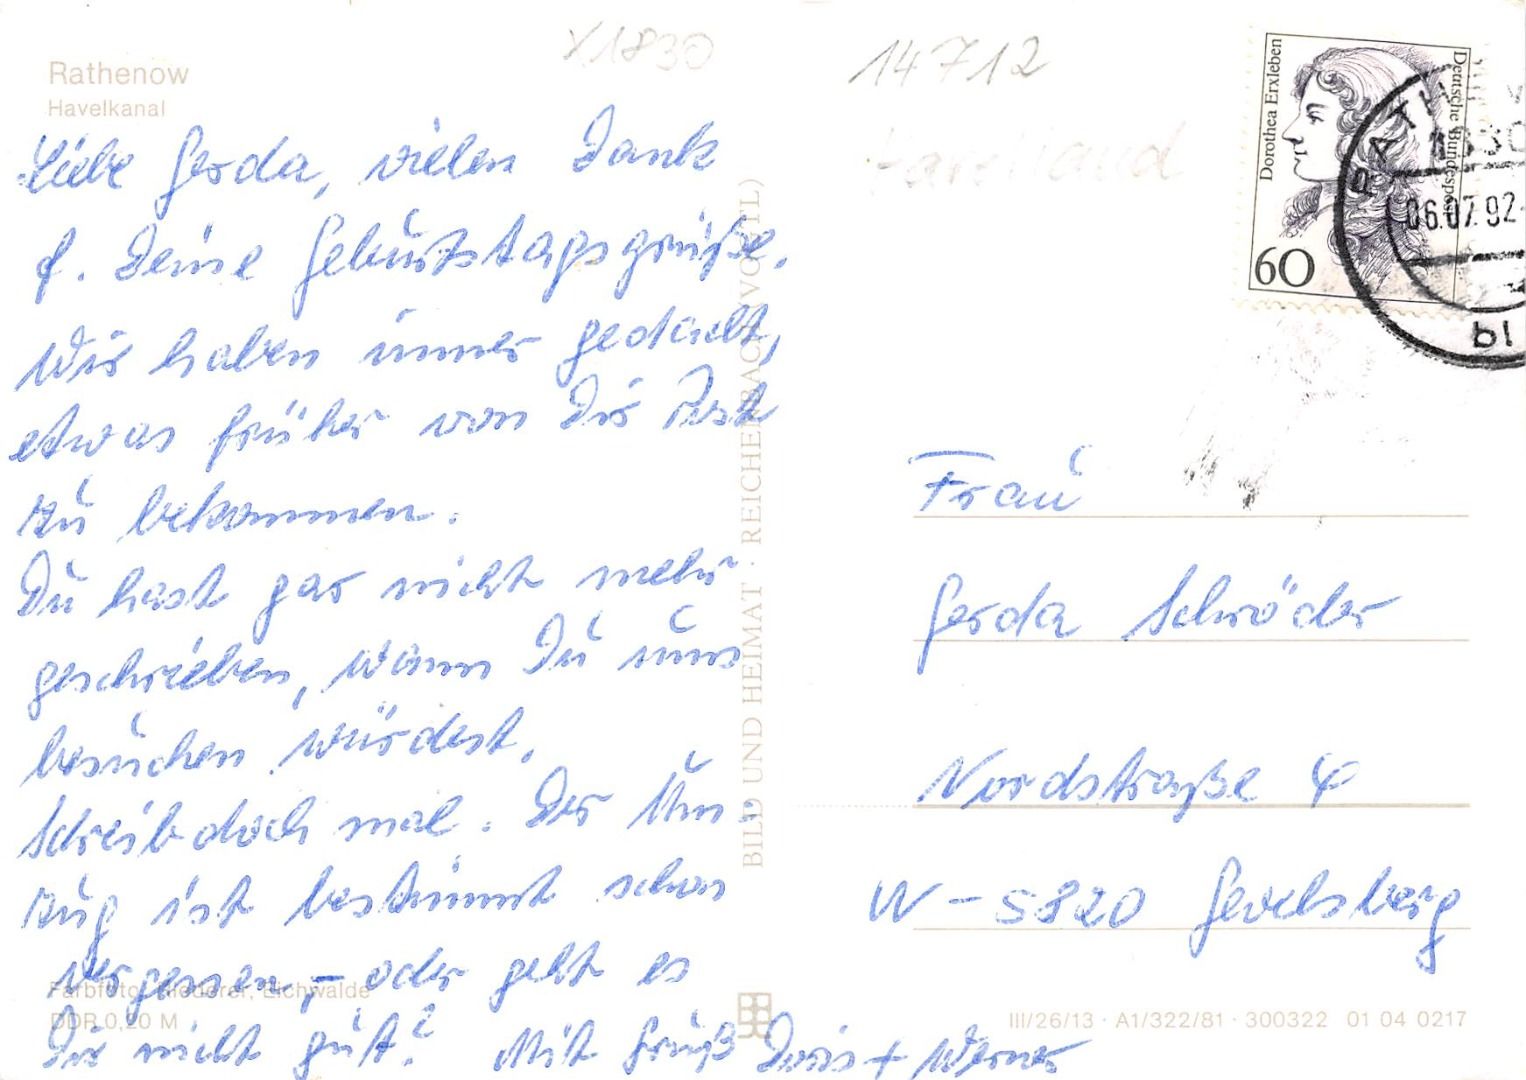 Rathenow
Havelkanal
Liebe Gerda, vielen Dank
f. Deine Geburtstagsgrüße.
Wir haben immer gedacht,
etwas früher von Dir Post
zu bekommen.
Du hast gar nicht mehr
geschrieben, wann Du uns
besuchen würdest.
Schreib doch mal. Der Um-
zug ist bestimmt schon
vergessen, – oder geht es
Dir nicht gut? Mit Gruß Doris + Werner
Farbfoto: Niederer, Eichwalde
DDR 0,20 M
BILD UND HEIMAT · REICHENBACH (VOGTL)
X1830
14712
Havelland
Dorothea Erxleben
Deutsche Bundespost
60
06.07.92
bl
Frau
Gerda Schröder
Nordstraße 4
W - 5820 Gevelsberg
III/26/13 · A1/322/81 · 300322 01 04 0217